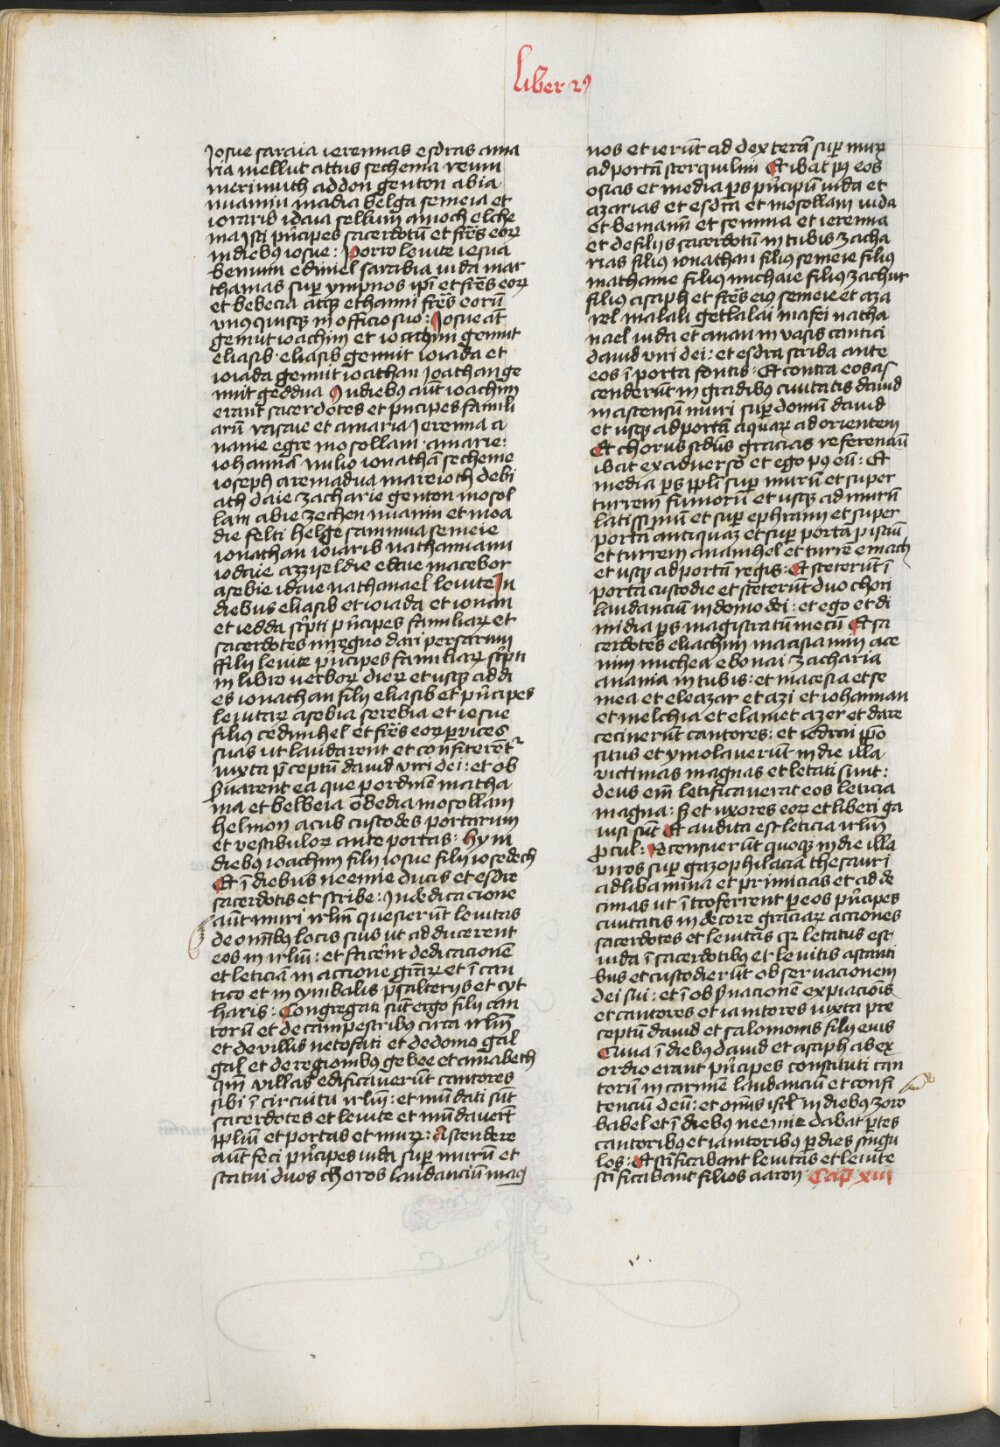 Liber 2⁹
Iosue saraia ieremias esdras ama
ria mellut attus sechema reum
merimuth addon genton abia
miamin madia belga semeia et
ioiarib idaia sellum amoch elche
ma Isti p̃ncipes sacerdotũ et fr̃es eoꝝ
in diebꝯ iosue : Porro leuite iesua
bennui cedmiel sarabia iuda mat
thamas sup ympnos ip̃i et fr̃es eoꝝ
et bebecia atqꝫ et hanni fr̃es eorũ
vnꝯquisqꝫ in officio suo : Iosue aũt
genuit ioachim et ioachim genuit
eliasib eliasib genuit ioiada et
ioiada genuit ioathan Ioathan ge
nuit geddua In diebꝯ aũt ioachim
erant sacerdotes et pncipes famili
arũ raraie et amaria Ieremia a
nanie egre mosollam amarie :
iohannã milio ionathã secheme
ioseph arem adua mareioth debi
ath daie zacharie genton mosol
lam abie zechen miamin et moa
die felti belge sammua semeie
ionathan ioiarib nathanniami
iodaie azziseldie edaie macebor
asebie idaie nathanael leuite In
diebus eliasib et ioiada et ionan
et iedda sc̃pti p̃ncipes familiaꝝ et
sacerdotes in regno dari persarum
ffilij leuite p̃ncipes familiaꝝ sc̃pti
in libro verboꝝ dieꝝ et usqꝫ ad di
es ionathan filij eliasib et p̃ncipes
leuitaꝝ asebia serebia et iesue
filiꝯ cedimhel et fr̃es eoꝝ p vices
suas ut laudarent et confiterẽt²
iuxta p̃ceptũ dauid viri dei : et ob
s̃uarent eã que p ordinẽ matha
nia et belbeia obedia mosollam
helmon acub custodes portarum
et vestibuloꝝ ante portas : hij in
diebꝯ ioachim filij iosue filij iosedech
Et ĩ diebus neemie ducis et esdre
sacerdotis et scribe : In dedicacione
aũt muri irl̃m quesierũt leuitas
de om̃ibꝯ locis suis ut adducerent
eos in irl̃m : et facer̃nt dedicacionẽ
et leticiã in accione gr̃aꝝ et ĩ can
tico et in cymbalis psalterijs et cyt
haris : Congregati sũt ergo filij can
torũ et de campestribꝯ circa irl̃m
et de villis netofati et de domo gal
gal et de regionibꝯ gebee et amabeth
qm̃ villas edificauerũt cantores
sibi ĩ circuitu irl̃m : et mũdati sũt
sacerdotes et leuite et mũdauerũt
pplm̃ et portas et muꝝ : Ascendere
aũt feci p̃ncipes iuda sup murũ et
statui duos choros laudanciũ mag
nos et ierũt ad dexterã sup muꝝ
ad portã sterquilinij Et ibat pꝯ eos
osias et media ps p̃ncipũ iuda et
azarias et esdra et mosollam iuda
et beniamĩ et semma et ieremia
et de filijs sacerdotũ in tubis zacha
rias filiꝯ ionathan filiꝯ semeie filiꝯ
mathanie filiꝯ michaie filiꝯ zachur
filiꝯ asaph et fr̃es eiꝯ semeie et aza
rel malali getlalai maseni natha
nael iuda et anani in vasis cantici
dauid viri dei : et esdra scriba ante
eos ĩ porta fontis Et contra eos as
cenderũt in gradibꝯ ciuitatis dauid
in ascensu muri sup domũ dauid
et usqꝫ ad portã aquaꝝ ad orientem
Et chorus scđus gracias referenciũ
ibat ex aduerso et ego pꝯ eũ : Et
media ps ppli sup murũ et super
turrem furnorũ et usqꝫ ad murũ
latissimũ et sup ephraim et super
portã antiquaꝫ et sup portã pisciũ
et turrem ananihel et turrẽ emath
et usqꝫ ad portã regis Et steterũt ĩ
porta custodie et steterũt duo chori
laudancium in domo dei : et ego et di
midia ps magistratũ mecũ Et sa
cerdotes eliachim maasia min ace
nim muchea ebonai zacharia
anania in tubis : et macesia et se
meia et eleazar et azi et iohannan
et melchia et elamet azer et dare
cecinerũt cantores : et iedraij ppo
situs et ymolauerũt in die illa
victimas magnas et letati sunt :
deus em̃ letificauerat eos leticia
magna : s̃ et vxores eoꝝ et liberi ga
uisi sũt Et audita est leticia irl̃m
procul : Recensuerũt quoqꝫ in die illa
viros sup gazophilacia thesauri
ad libamina et primicias et ad de
cimas ut ĩtroferrent p eos p̃ncipes
ciuitatis in decore graciaꝝ acciones
sacerdotes et leuitas qꝛ letatus est
iuda ĩ sacerdotibꝯ et leuitis astanti
bus et custodierũt obseruacionem
dei sui : et ĩ obs̃uacionẽ expiacõis
et cantores et ianitores iuxta pre
ceptũ dauid et salomonis filij eius
Quia ĩ diebꝯ dauid et asaph ab ex
ordio erant p̃ncipes constituti can
torũ in carmine laudanciũ et confi
tenciũ deũ : et om̃is isr̃l in diebꝯ zoro
babel et ĩ diebꝯ neemie dabat p̃tes
cantoribꝯ et ianitoribꝯ p dies singu
los : Et sc̃ificabant leuitas et leuite
sc̃ificabant filios aaron Cap̃ xiii